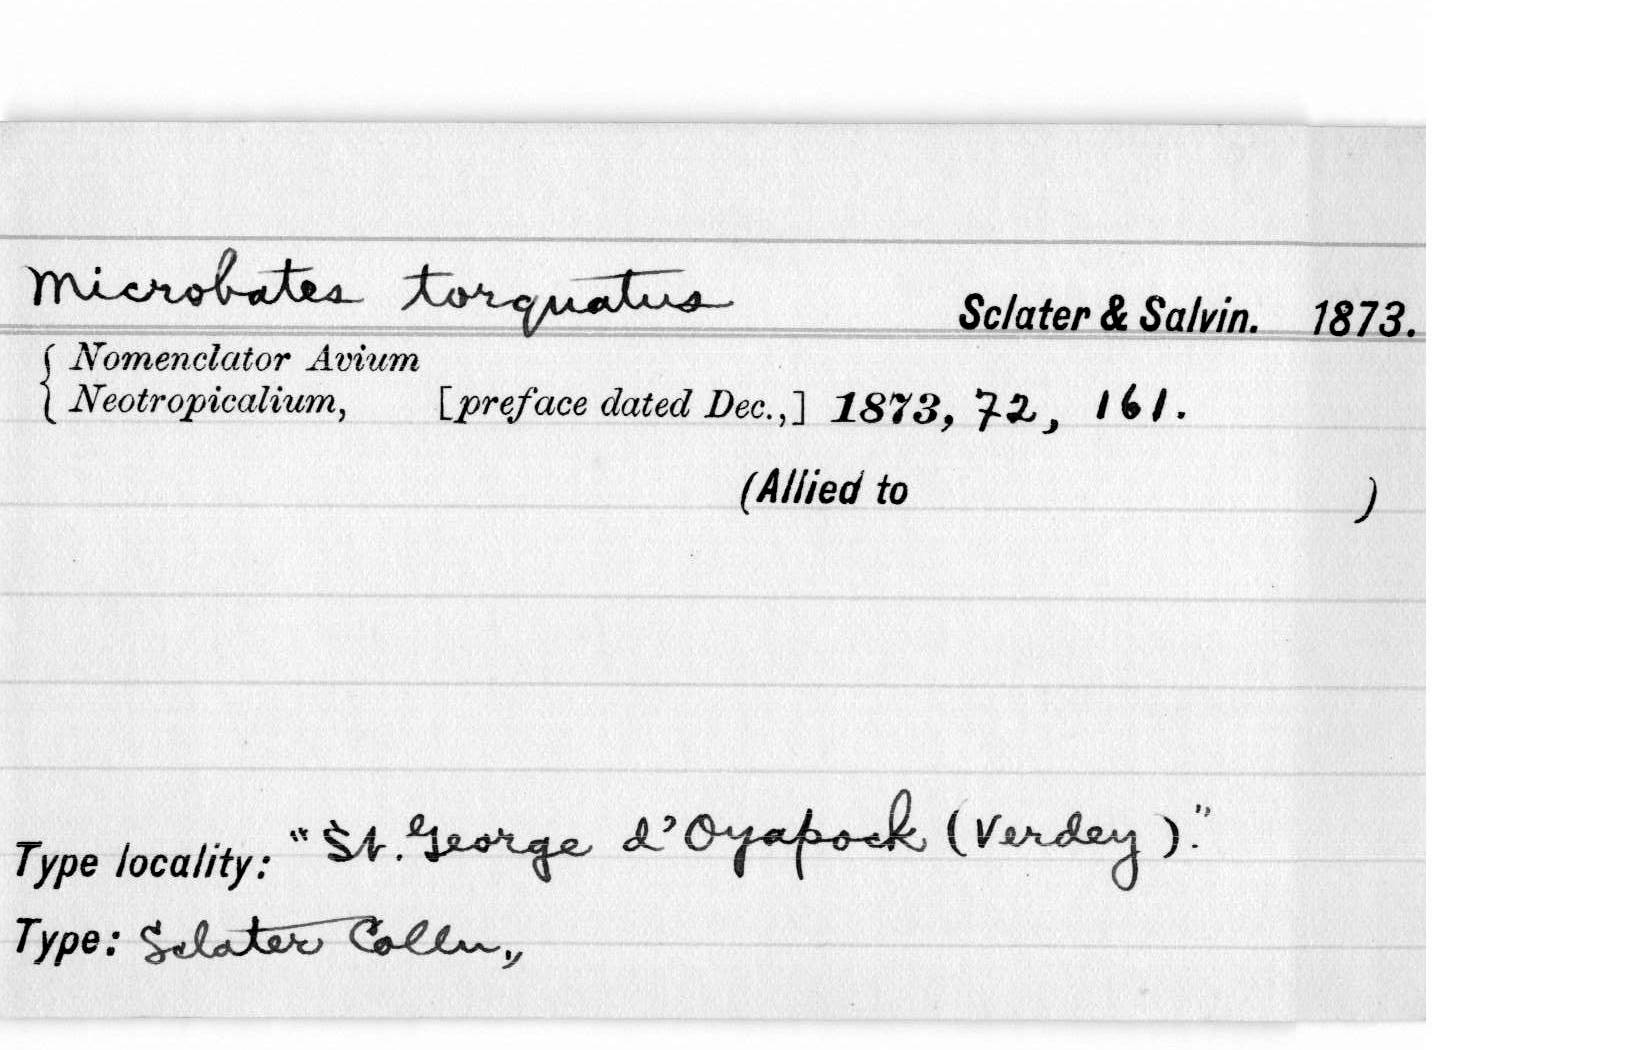 Microbates torquatus Sclater & Salvin. 1873.
{ Nomenclator Avium
Neotropicalium, [preface dated Dec.,] 1873, 72, 161.
(Allied to )
Type locality: "St. George d'Oyapock (Verdey)."
Type: Sclater Colln.,